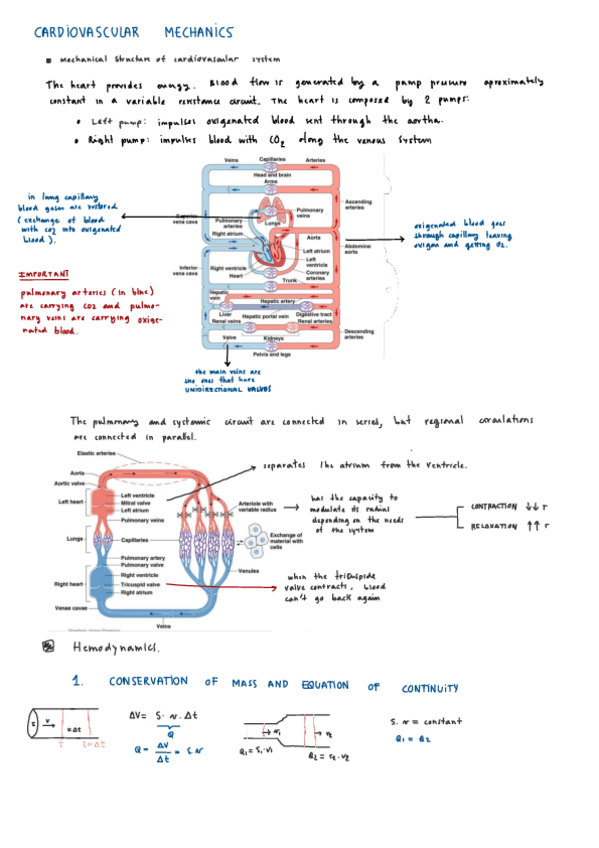 CARDIOVASCULAR MECHANICS
Mechanical structure of cardiovascular system
The heart provides energy. Blood flow is generated by a pump pressure aproximately
constant in a variable resistance circuit. The heart is composed by 2 pumps:
• Left pump: impulses oxigenated blood sent through the aortha.
• Right pump: impulses blood with CO2 along the venous system
Veins
Capillaries
Arteries
Head and brain
Arms
in lung capillary
blood gases are restored
(exchange of blood
with co2 into oxigenated
blood).
Superior
vena cava
Pulmonary
arteries
Right atrium
Lungs
Pulmonary
veins
Aorta
Left atrium
Left
ventricle
Coronary
arteries
Ascending
arteries
Abdominal
aorta
oxigenated blood goes
through capillary leaving
oxigen and getting O2.
Inferior
vena cava
Right ventricle
Heart
Trunk
IMPORTANT
pulmonary arteries (in blue)
are carrying CO2 and pulmo-
nary veins are carrying oxige-
nated blood.
Hepatic
vein
Hepatic artery
Liver
Hepatic portal vein
Digestive tract
Renal veins
Renal arteries
Descending
arteries
Valve
Kidneys
Pelvis and legs
the main veins are
the ones that have
UNIDIRECTIONAL VALVES
The pulmonary and systemic circuit are connected in series, but regional circulations
are connected in parallel.
Elastic arteries
Aorta
Aortic valve
Left heart
Left ventricle
Mitral valve
Left atrium
Pulmonary veins
Lungs
Capillaries
Pulmonary artery
Pulmonary valve
Right heart
Right ventricle
Tricuspid valve
Right atrium
Venae cavae
Veins
Arteriole with
variable radius
Exchange of
material with
cells
Venules
separates the atrium from the ventricle.
has the capacity to
modulate its radius
depending on the needs
of the system
CONTRACTION ↓↓ r
RELAXATION ↑↑ r
when the tricuspide
valve contracts, blood
can't go back again
Hemodynamics.
1. CONSERVATION OF MASS AND EQUATION OF CONTINUITY
S
v
v·Δt
t
t+Δt
ΔV = S · v · Δt
Q
Q = ΔV/Δt = S·v
v1
v2
Q1 = S1·v1
Q2 = S2·v2
S·v = constant
Q1 = Q2